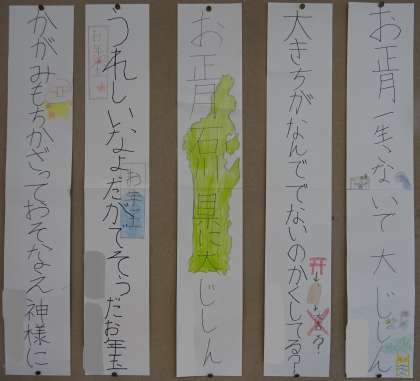 お正月一生さないて大じしん
大きちがなんででないのかくしてる?
お正月石川県に大じしん
うれしいなよだがでそうだお年玉
お年玉
かがみもちかざっておそなえ神様に